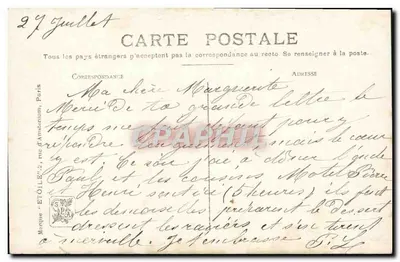 27 Juillet
CARTE POSTALE
Tous les pays étrangers n'acceptent pas la correspondance au recto. Se renseigner à la poste
CORRESPONDANCE
ADRESSE
Ma chère Marguerite
Merci de ta grande lettre le
temps me pour y
répondre mais le cœur
y est. Ce soir j'ai à dîner l'oncle
Paul et les cousins Pierre
et Henri sont ici (5 heures) ils font
les demoiselles préparent le dessert
dressent les et s'en tirent
à merveille. Je t'embrasse
Marque "ETOILE", rue d'Amsterdam, Paris